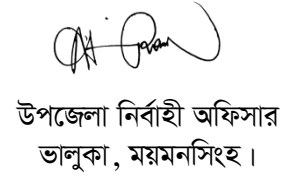 উপজেলা নির্বাহী অফিসার
ভালুকা, ময়মনসিংহ।